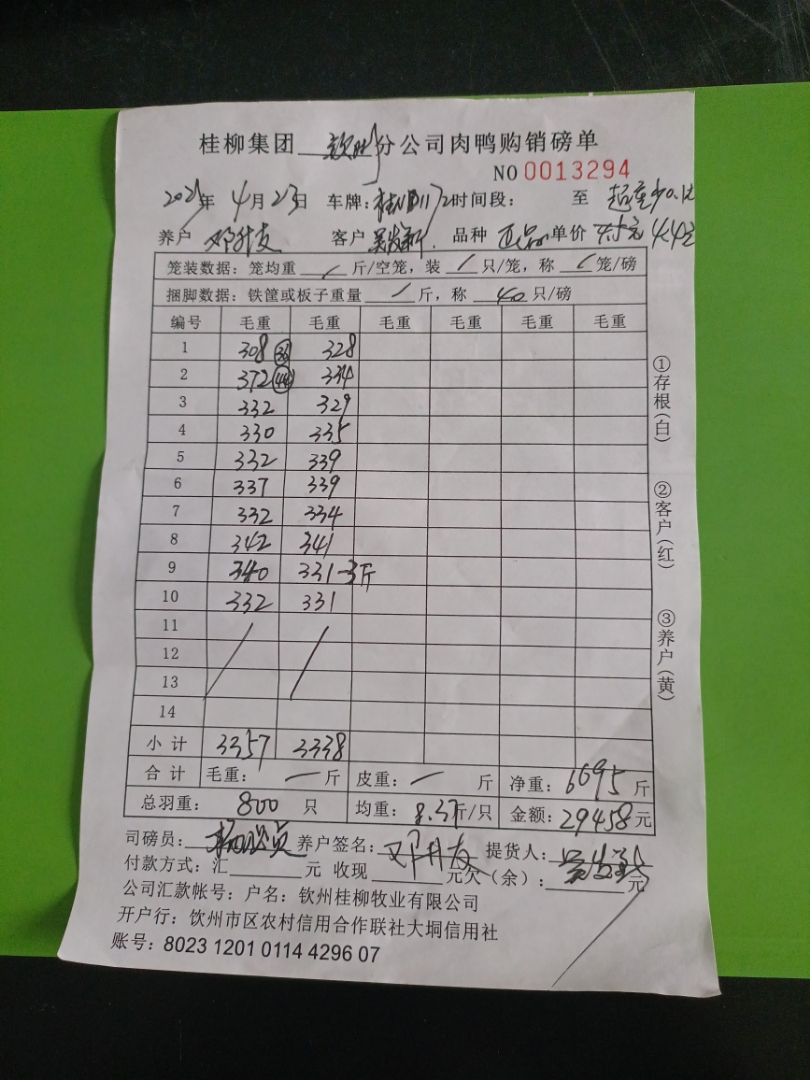 桂柳集团 钦州分公司肉鸭购销磅单
NO 0013294
2021年4月23日 车牌: 时间段: 至
养户 客户 品种 正品 单价 4.5元 4.4元
笼装数据：笼均重 / 斤/空笼，装 / 只/笼，称 / 笼/磅
捆脚数据：铁筐或板子重量 / 斤，称 40 只/磅
编号 毛重 毛重 毛重 毛重 毛重 毛重
1 308 36 328
2 372 44 334
3 332 329
4 330 335
5 332 339
6 337 339
7 332 334
8 342 341
9 340 331-3斤
10 332 331
11
12
13
14
小计 3357 3338
合计 毛重: 斤 皮重: 斤 净重: 6695 斤
总羽重: 800 只 均重: 8.37斤/只 金额: 29458元
司磅员: 养户签名: 提货人:
付款方式：汇 元 收现 元欠（余）: 元
公司汇款帐号：户名：钦州桂柳牧业有限公司
开户行：钦州市区农村信用合作联社大垌信用社
账号：8023 1201 0114 4296 07
①存根（白）
②客户（红）
③养户（黄）